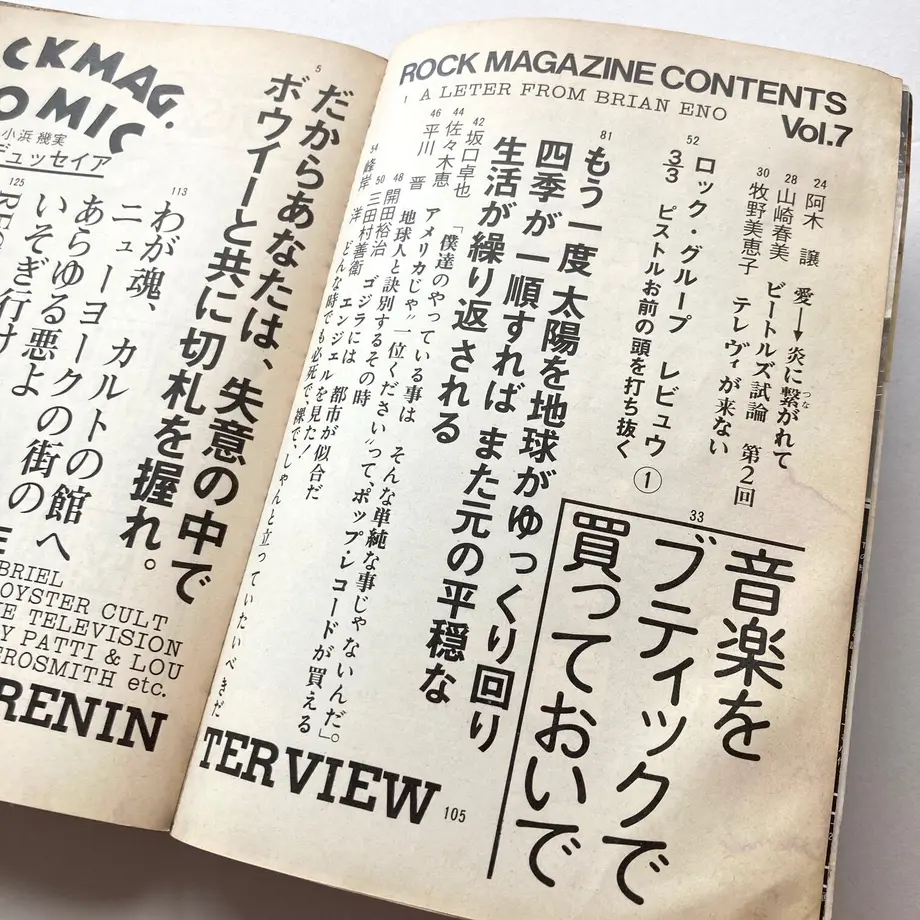 ROCK MAGAZINE CONTENTS
Vol.7
1 A LETER FROM BRIAN ENO
24 阿木 譲 愛→炎に繋がれて
つな
28 山崎春美 ビートルズ試論 第2回
30 牧野美恵子 テレヴィが来ない
52 ロック・グループ レビュウ ①
3/3 ピストルお前の頭を打ち抜く
33
音楽を
ブティックで
買っておいで
81 もう一度 太陽を地球がゆっくり回り
四季が一順すれば また元の平穏な
生活が繰り返される
42 坂口卓也
44 佐々木恵
46 平川 晋
「僕達のやっている事は そんな単純な事じゃないんだ」。
アメリカじゃ"一位ください"って、ポップ・レコードが買える
48 開田裕治 地球人と訣別するその時
50 三田村善衛 ゴジラには 都市が似合だ
54 峰岸 洋 エンジェルを見た!
どんな時でも必死で、裸で、しゃんと立っていたいべきだ
TERVIEW 105
5 だからあなたは、失意の中で
ボウイーと共に切札を握れ。
113 わが魂、カルトの館へ
ニューヨークの街の
あらゆる悪よ
いそぎ行け
125
CKMAG.
OMIC
小浜 幾実
デュッセイア
BRIEL
OYSTER CULT
E TELEVISION
Y PATTI & LOU
EROSMITH etc.
RENIN